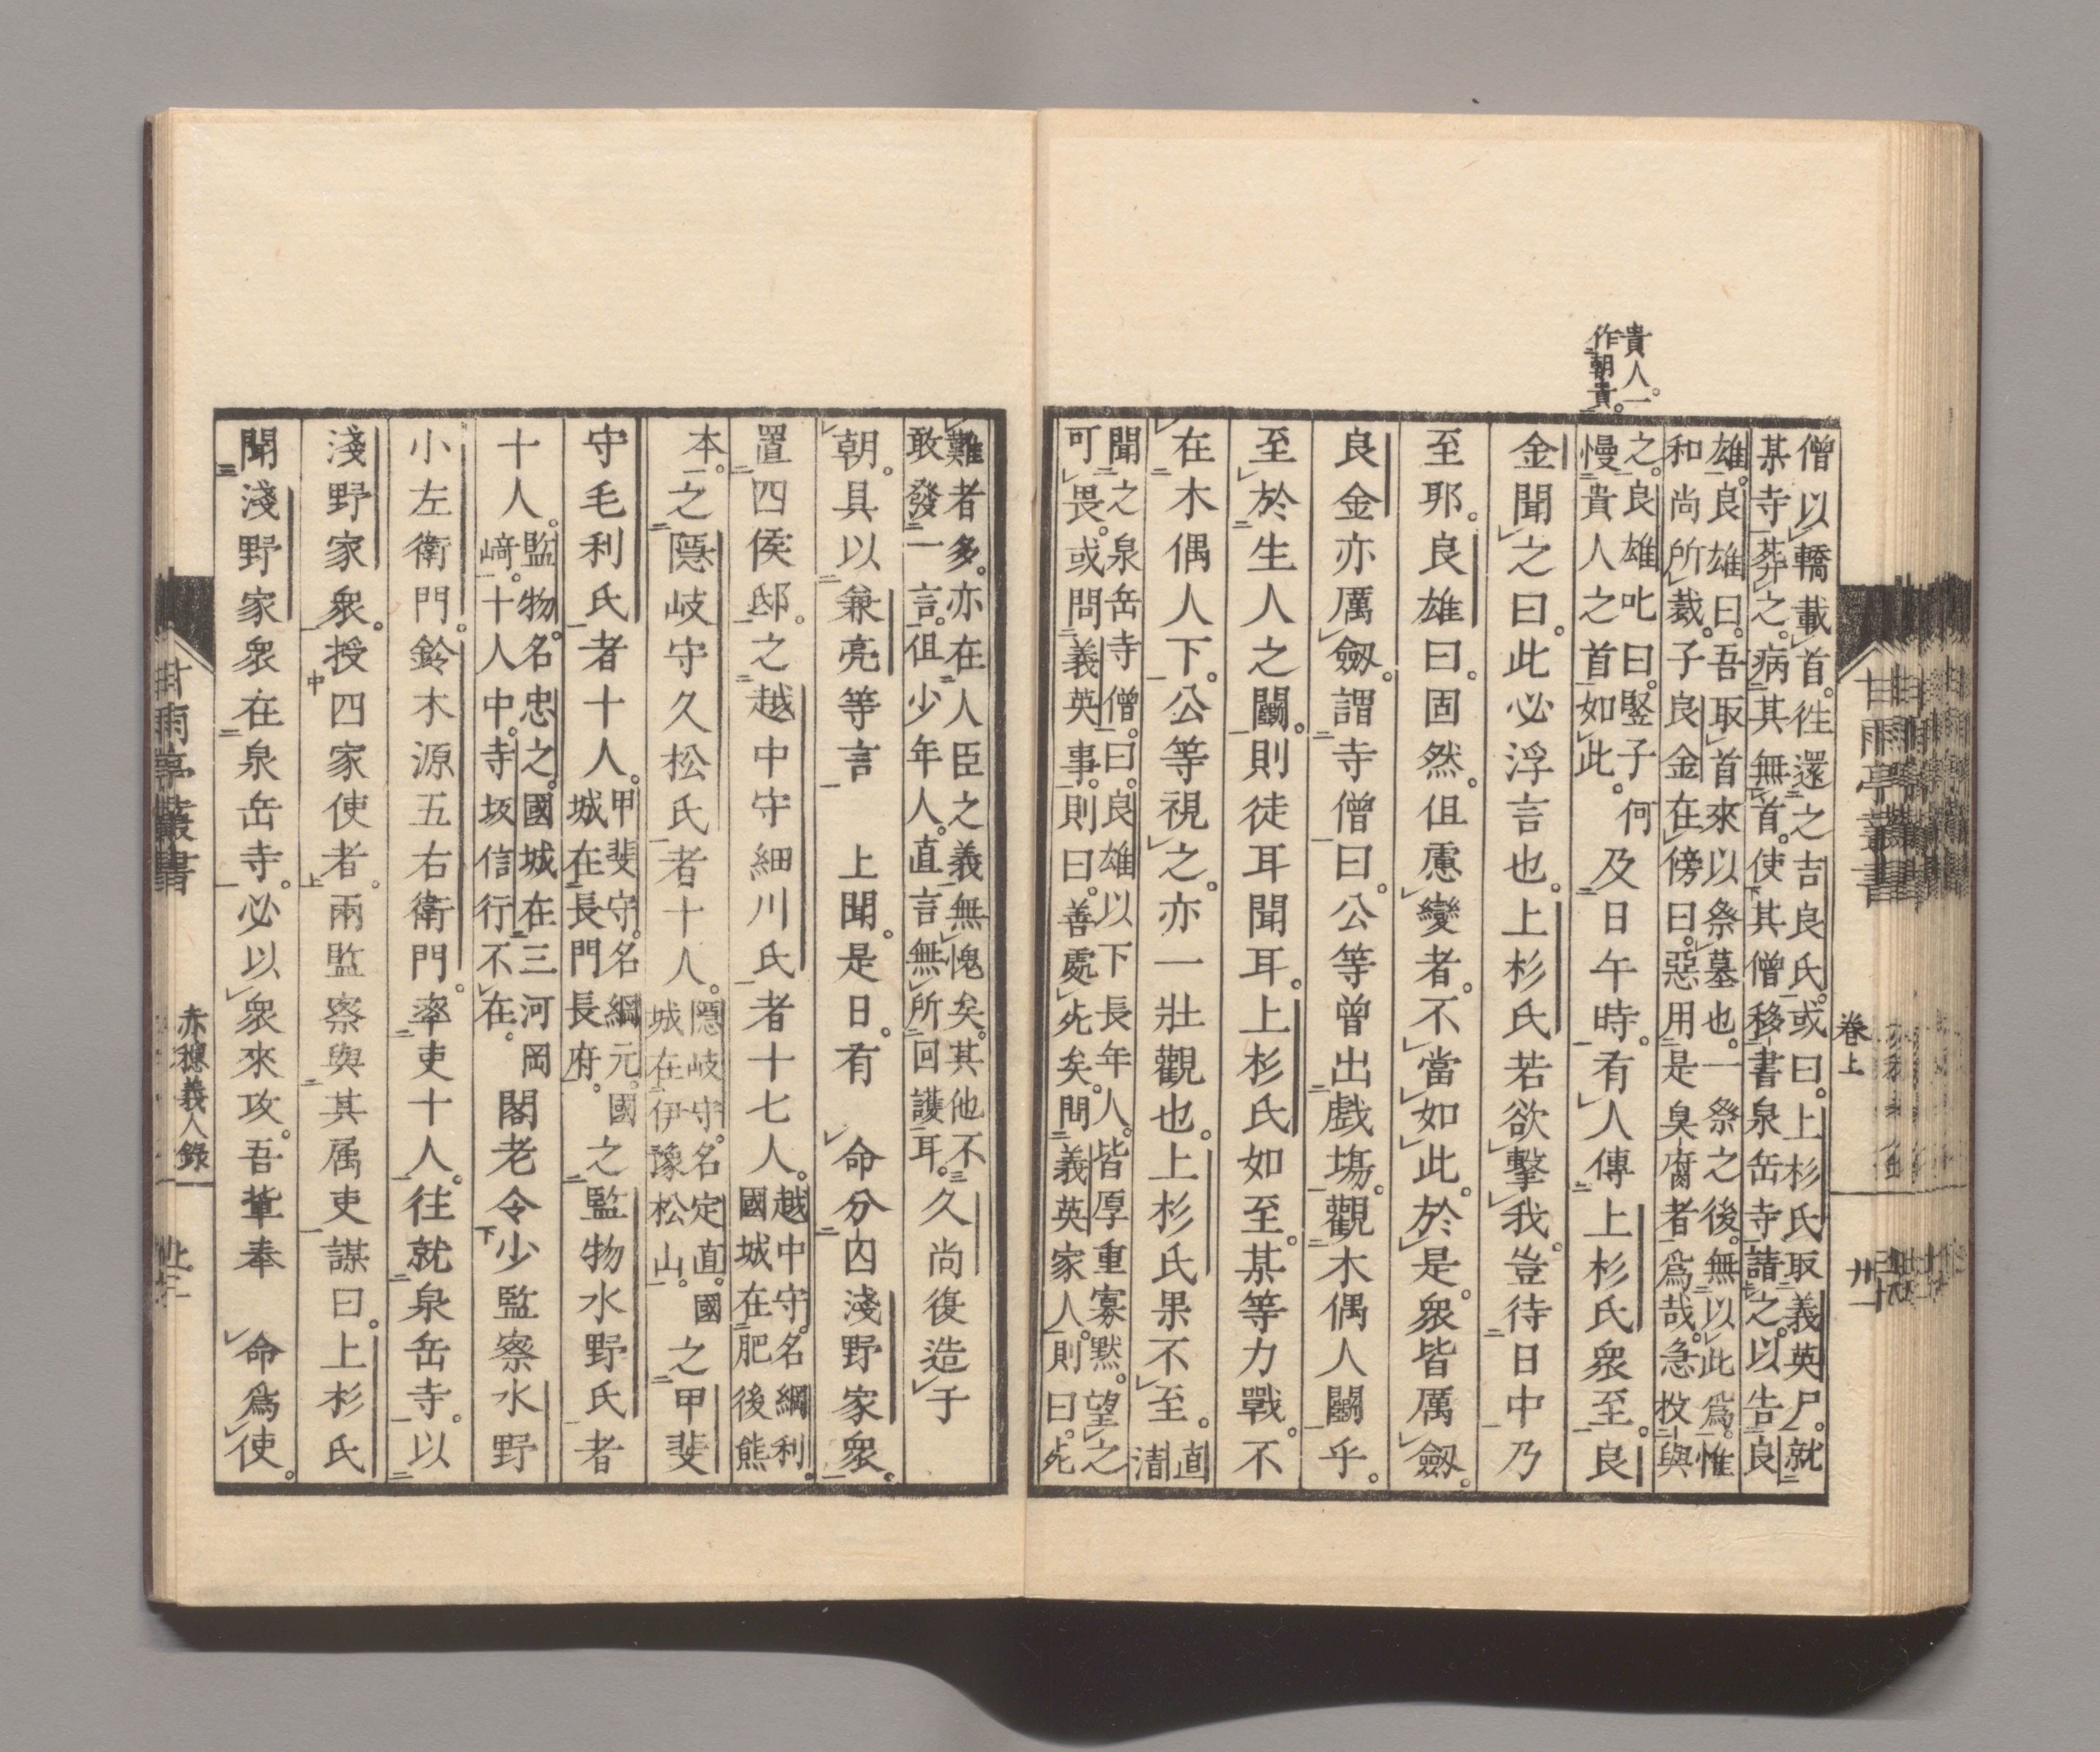 貴人。一
作朝貴。
僧以轎載首。往還之吉良氏。或曰。上杉氏取義英尸。就
某寺葬之。病其無首。使其僧移書泉岳寺請之。以告良
雄。良雄曰。吾取首來以祭墓也。一祭之後。無以此爲。惟
和尚所裁。子良金在傍曰。惡用是臭腐者爲哉。急投與
之。良雄叱曰。豎子何
慢貴人之首如此。
及日午時。有人傳上杉氏衆至。良
金聞之曰。此必浮言也。上杉氏若欲擊我。豈待日中乃
至耶。良雄曰。固然。但慮變者。不當如此。於是衆皆厲劔。
良金亦厲劔。謂寺僧曰。公等曾出戲場。觀木偶人鬭乎。
至於生人之鬭。則徒耳聞耳。上杉氏如至。某等力戰。不
在木偶人下。公等視之。亦一壯觀也。上杉氏果不至。
直
清
聞之泉岳寺僧。曰。良雄以下長年人。皆厚重寡默。望之
可畏。或問義英事。則曰。善處死矣。問義英家人。則曰。死
卷上
廿一
難者多。亦在人臣之義無愧矣。其他不
敢發一言。但少年人。直言無所回護耳。
久尚復造于
朝。具以兼亮等言 上聞。是日。有 命分囚淺野家衆。
置四侯邸。之越中守細川氏者十七人。
越中守。名綱利。
國城在肥後熊
本。
之隱岐守久松氏者十人。
隱岐守。名定直。國
城在伊豫松山。
之甲斐
守毛利氏者十人。
甲斐守。名綱元。國
城在長門長府。
之監物水野氏者
十人。
監物。名忠之。國城在三河岡
﨑。十人中。寺坂信行不在。
閣老令少監察水野
小左衛門。鈴木源五右衛門。率吏十人。往就泉岳寺。以
淺野家衆。授四家使者。兩監察與其属吏謀曰。上杉氏
聞淺野家衆在泉岳寺。必以衆來攻。吾輩奉 命爲使。
甘雨亭叢書
赤穗義人錄